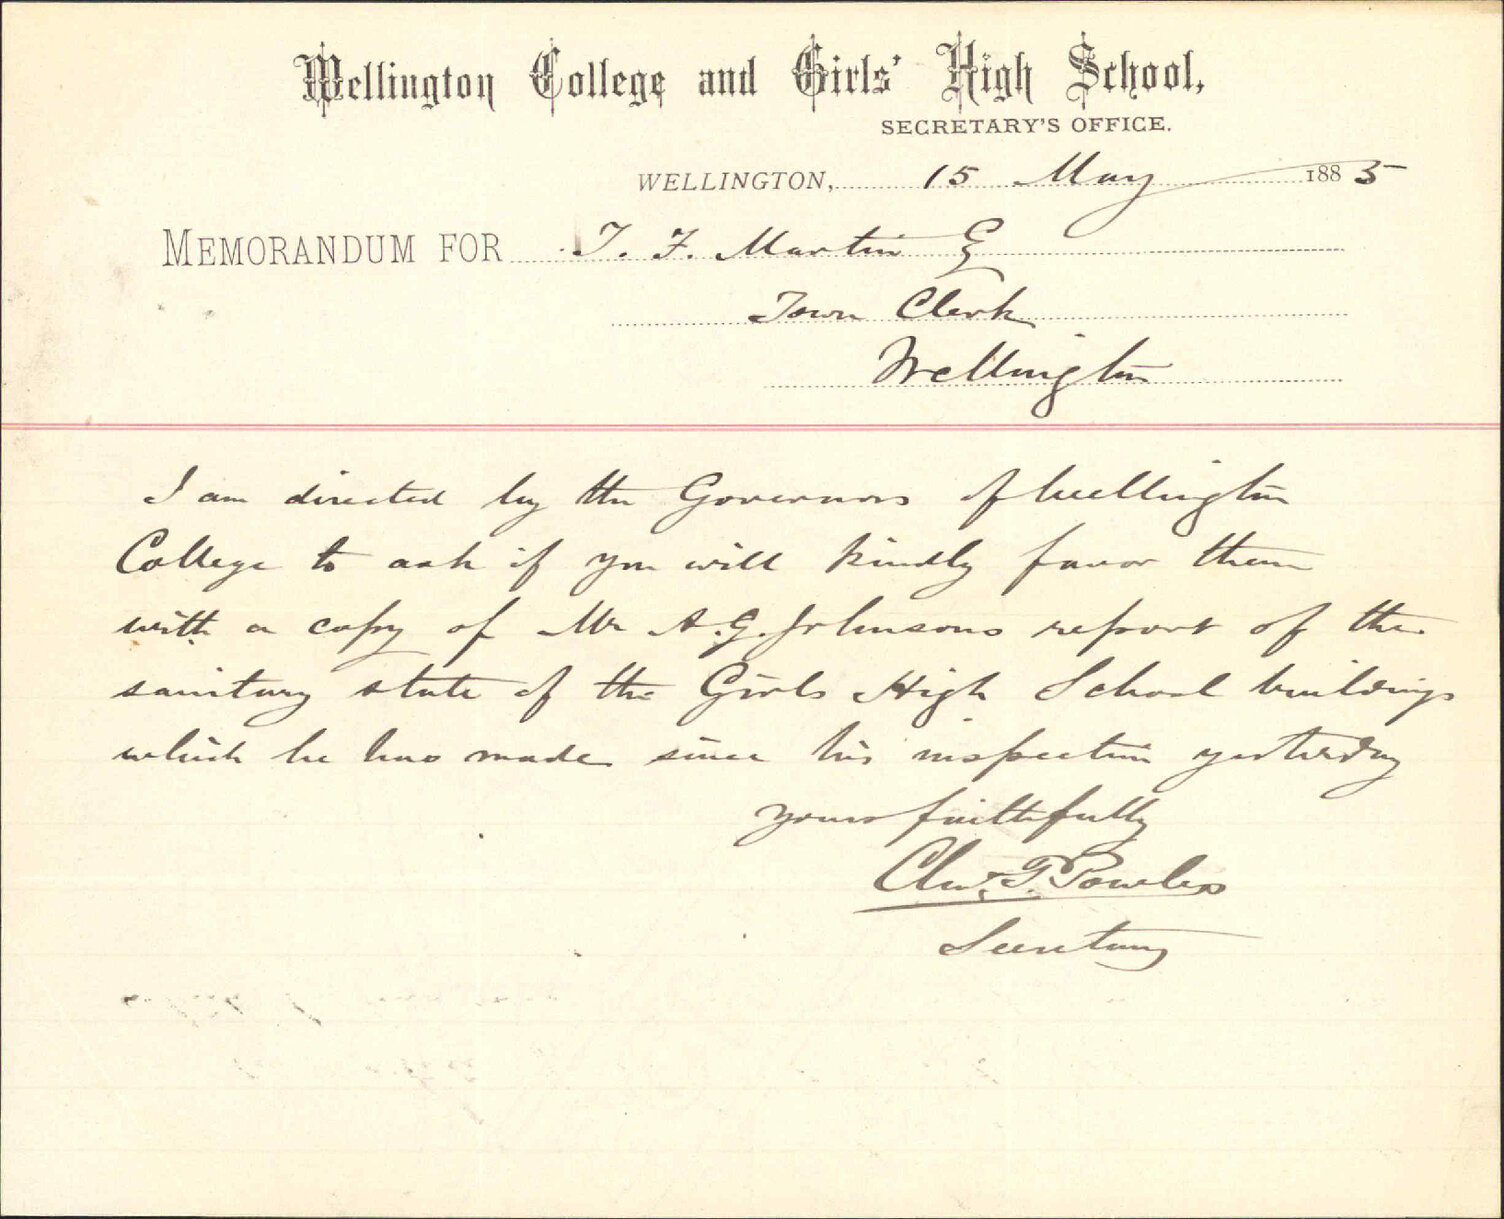 Wellington College and Girls' High School,
SECRETARY'S OFFICE.
WELLINGTON, 15 May 1885
MEMORANDUM FOR T. F. Martin Eq
Town Clerk
Wellington
I am directed by the Governors of Wellington
College to ask if you will kindly favor them
with a copy of Mr A. G. Johnsons report of the
sanitary state of the Girls High School buildings
which he has made since his inspection yesterday
yours faithfully
Chas. P. Powles
Secretary